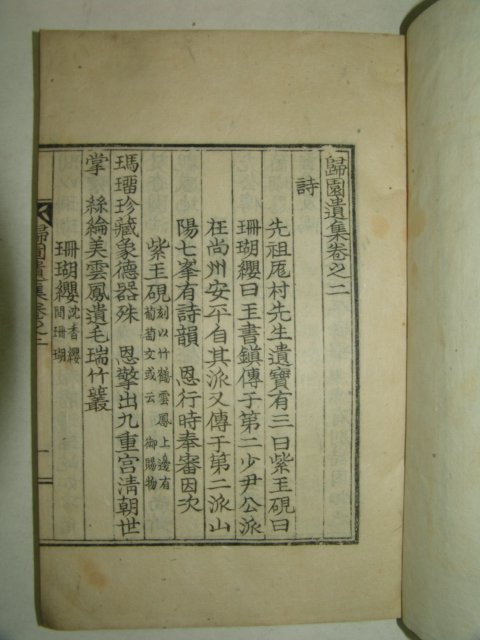 歸園遺集卷之二
詩
先祖巵村先生遺寶有三曰紫玉硯曰
珊瑚纓曰玉書鎭傳于第二少尹公派
在尙州安平自其派又傳于第二派山
陽七峯有詩韻 恩行時奉審因次
紫玉硯 刻以竹鶴雲鳳上邊有
葡萄文或云 御賜物
瑪瑠珍藏象德器殊 恩擎出九重宮淸朝世
掌 絲綸美雲鳳遺毛瑞竹叢
珊瑚纓 沈香纓
間珊瑚
歸園遺集卷之二
一